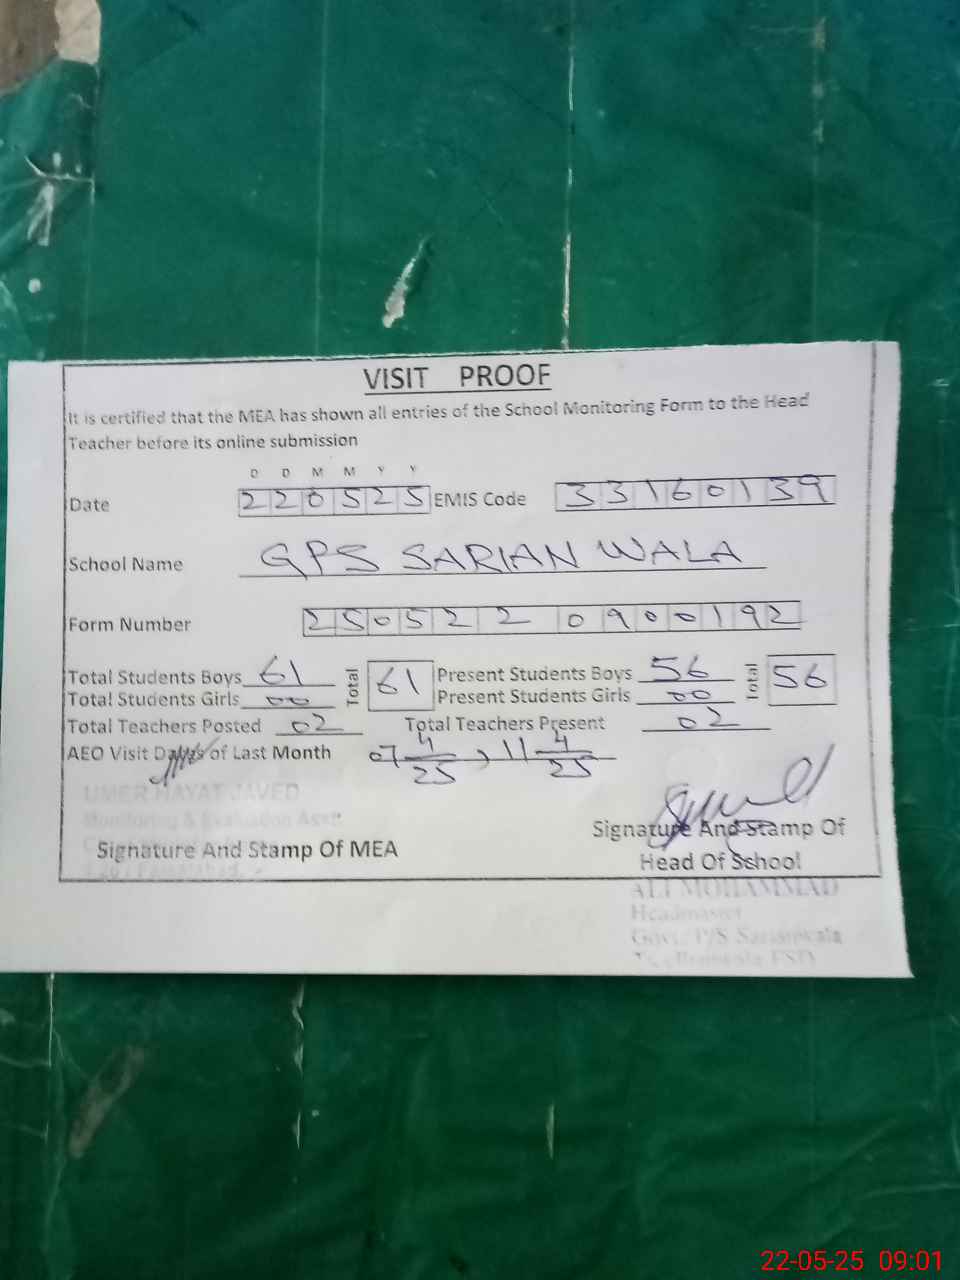 VISIT PROOF
It is certified that the MEA has shown all entries of the School Monitoring Form to the Head
Teacher before its online submission
D D M M Y Y
Date 220525 EMIS Code 33160139
School Name GPS SARIAN WALA
Form Number 250522 0900192
Total Students Boys 61 Total 61 Present Students Boys 56 Total 56
Total Students Girls 00 Present Students Girls 00
Total Teachers Posted 02 Total Teachers Present 02
AEO Visit Dates of Last Month 07 4/25, 11 4/25
UMER HAYAT JAVED
Monitoring & Evaluation Asstt
Signature And Stamp Of MEA
Signature And Stamp Of
Head Of School
Faisalabad.
ALI MOHAMMAD
Headmaster
Govt: P/S Sarianwala
FSD
22-05-25 09:01